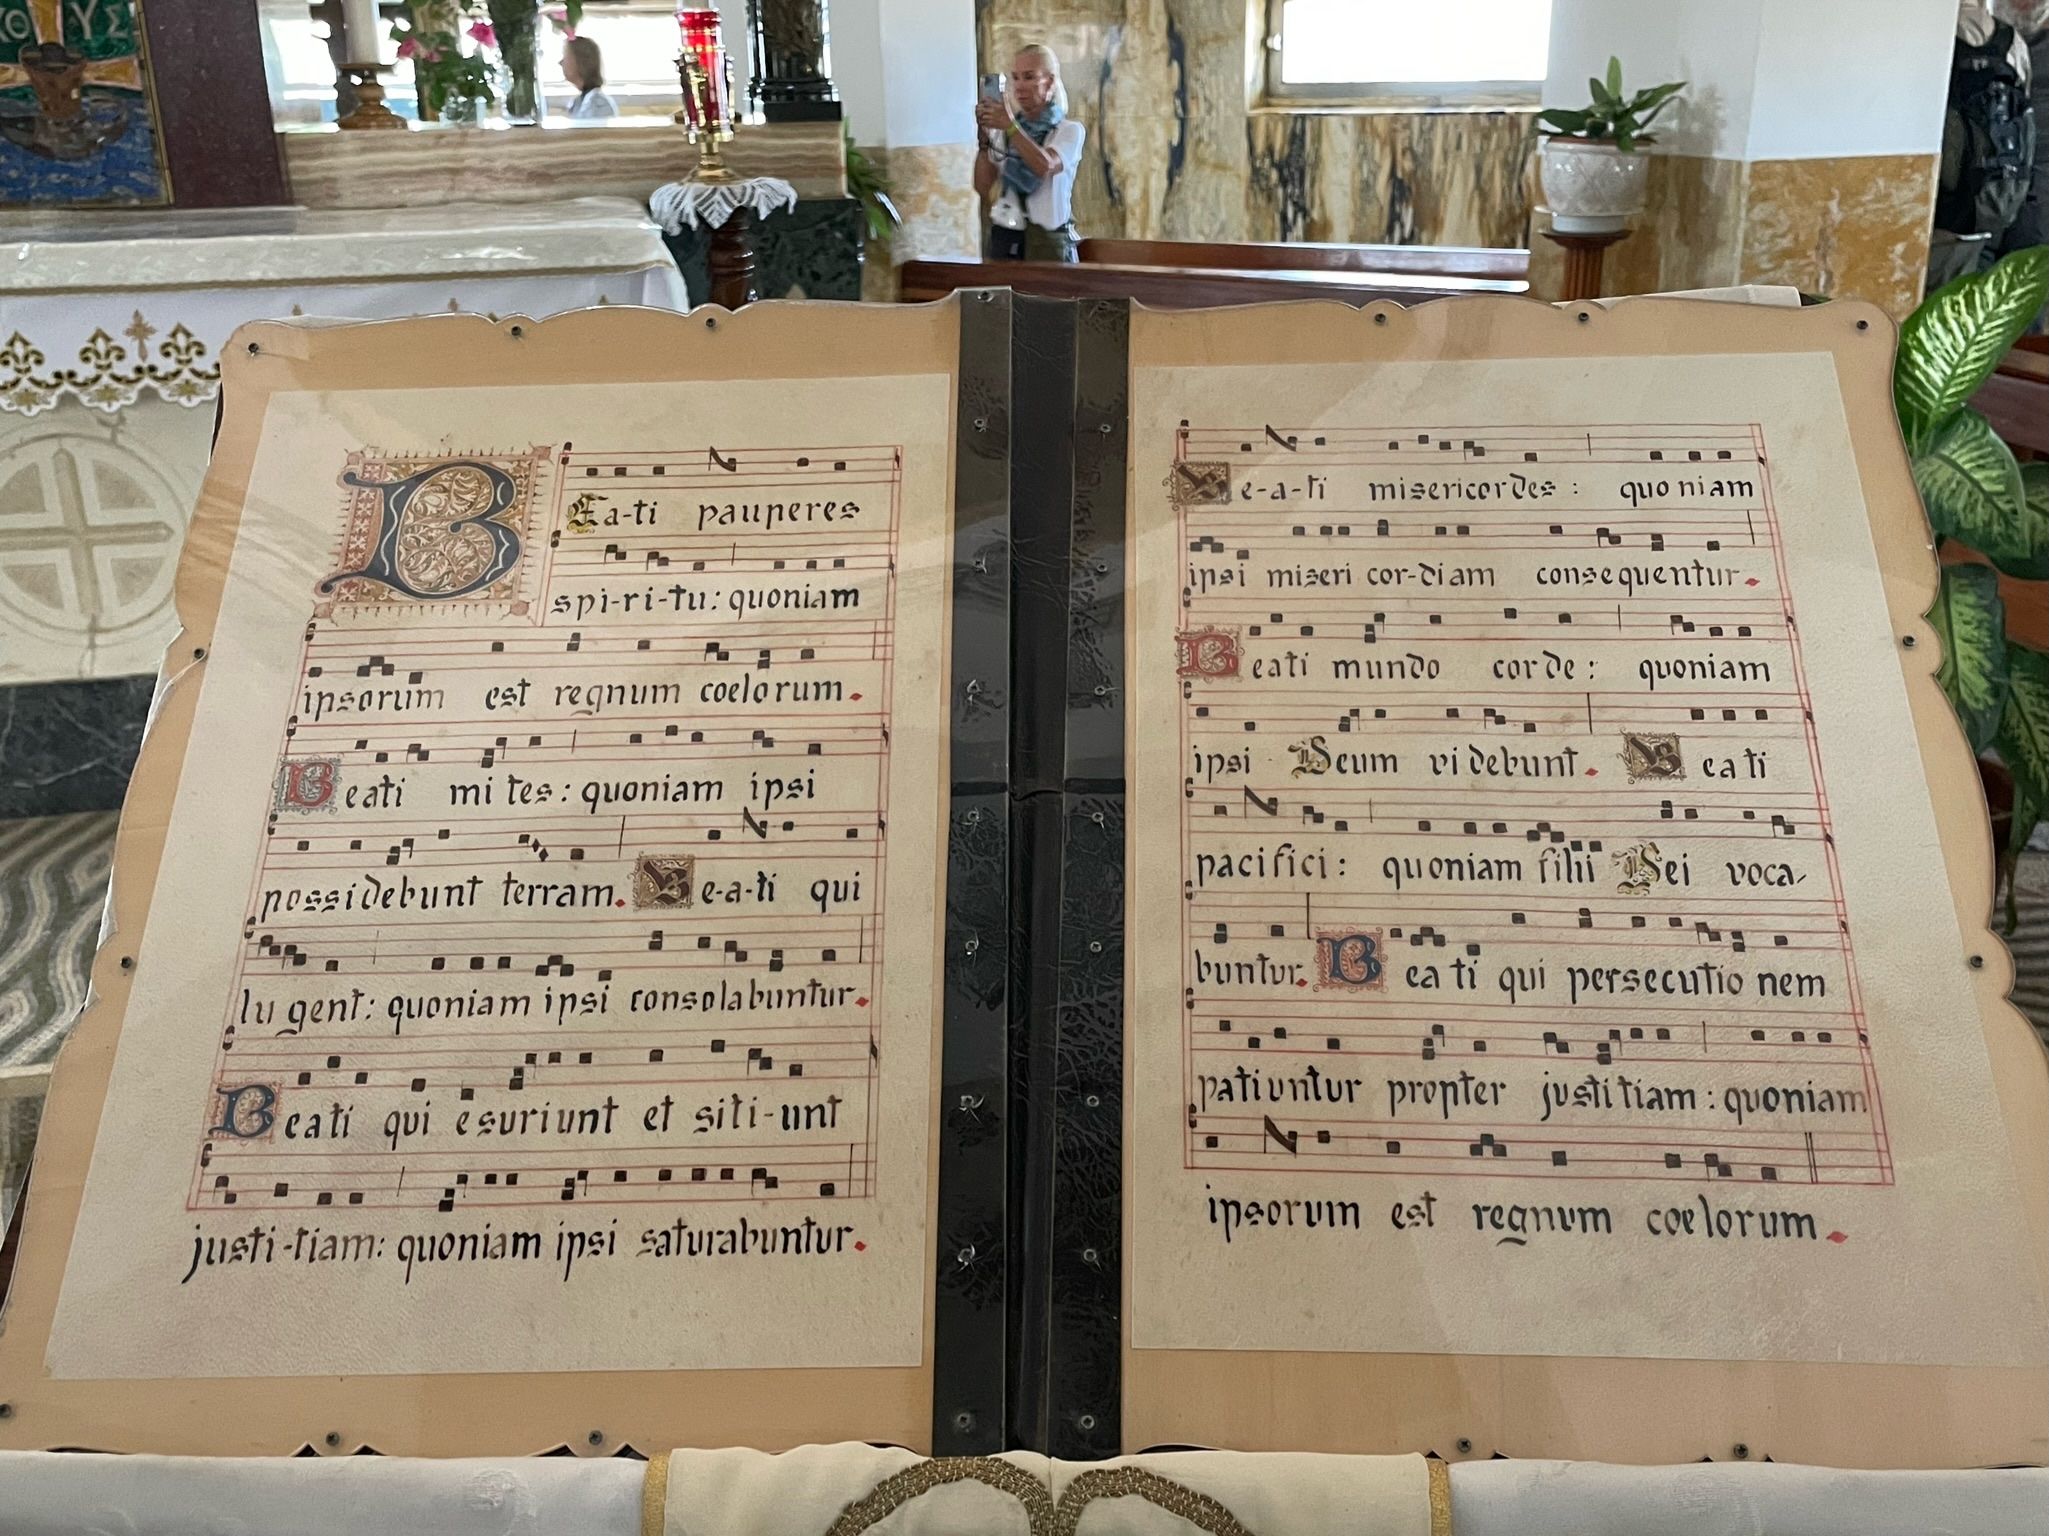 BEa-ti pauperes
spi-ri-tu: quoniam
ipsorum est regnum coelorum.
Beati mi tes: quoniam ipsi
possidebunt terram. Be-a-ti qui
lu gent: quoniam ipsi consolabuntur.
Beati qui esuriunt et siti-unt
justi-tiam: quoniam ipsi saturabuntur.
Be-a-ti misericordes: quoniam
ipsi miseri cor-diam consequentur.
Beati mundo corde: quoniam
ipsi Deum videbunt. Beati
pacifici: quoniam filii Dei voca-
buntur. Beati qui persecutionem
patiuntur propter justitiam: quoniam
ipsorum est regnum coelorum.